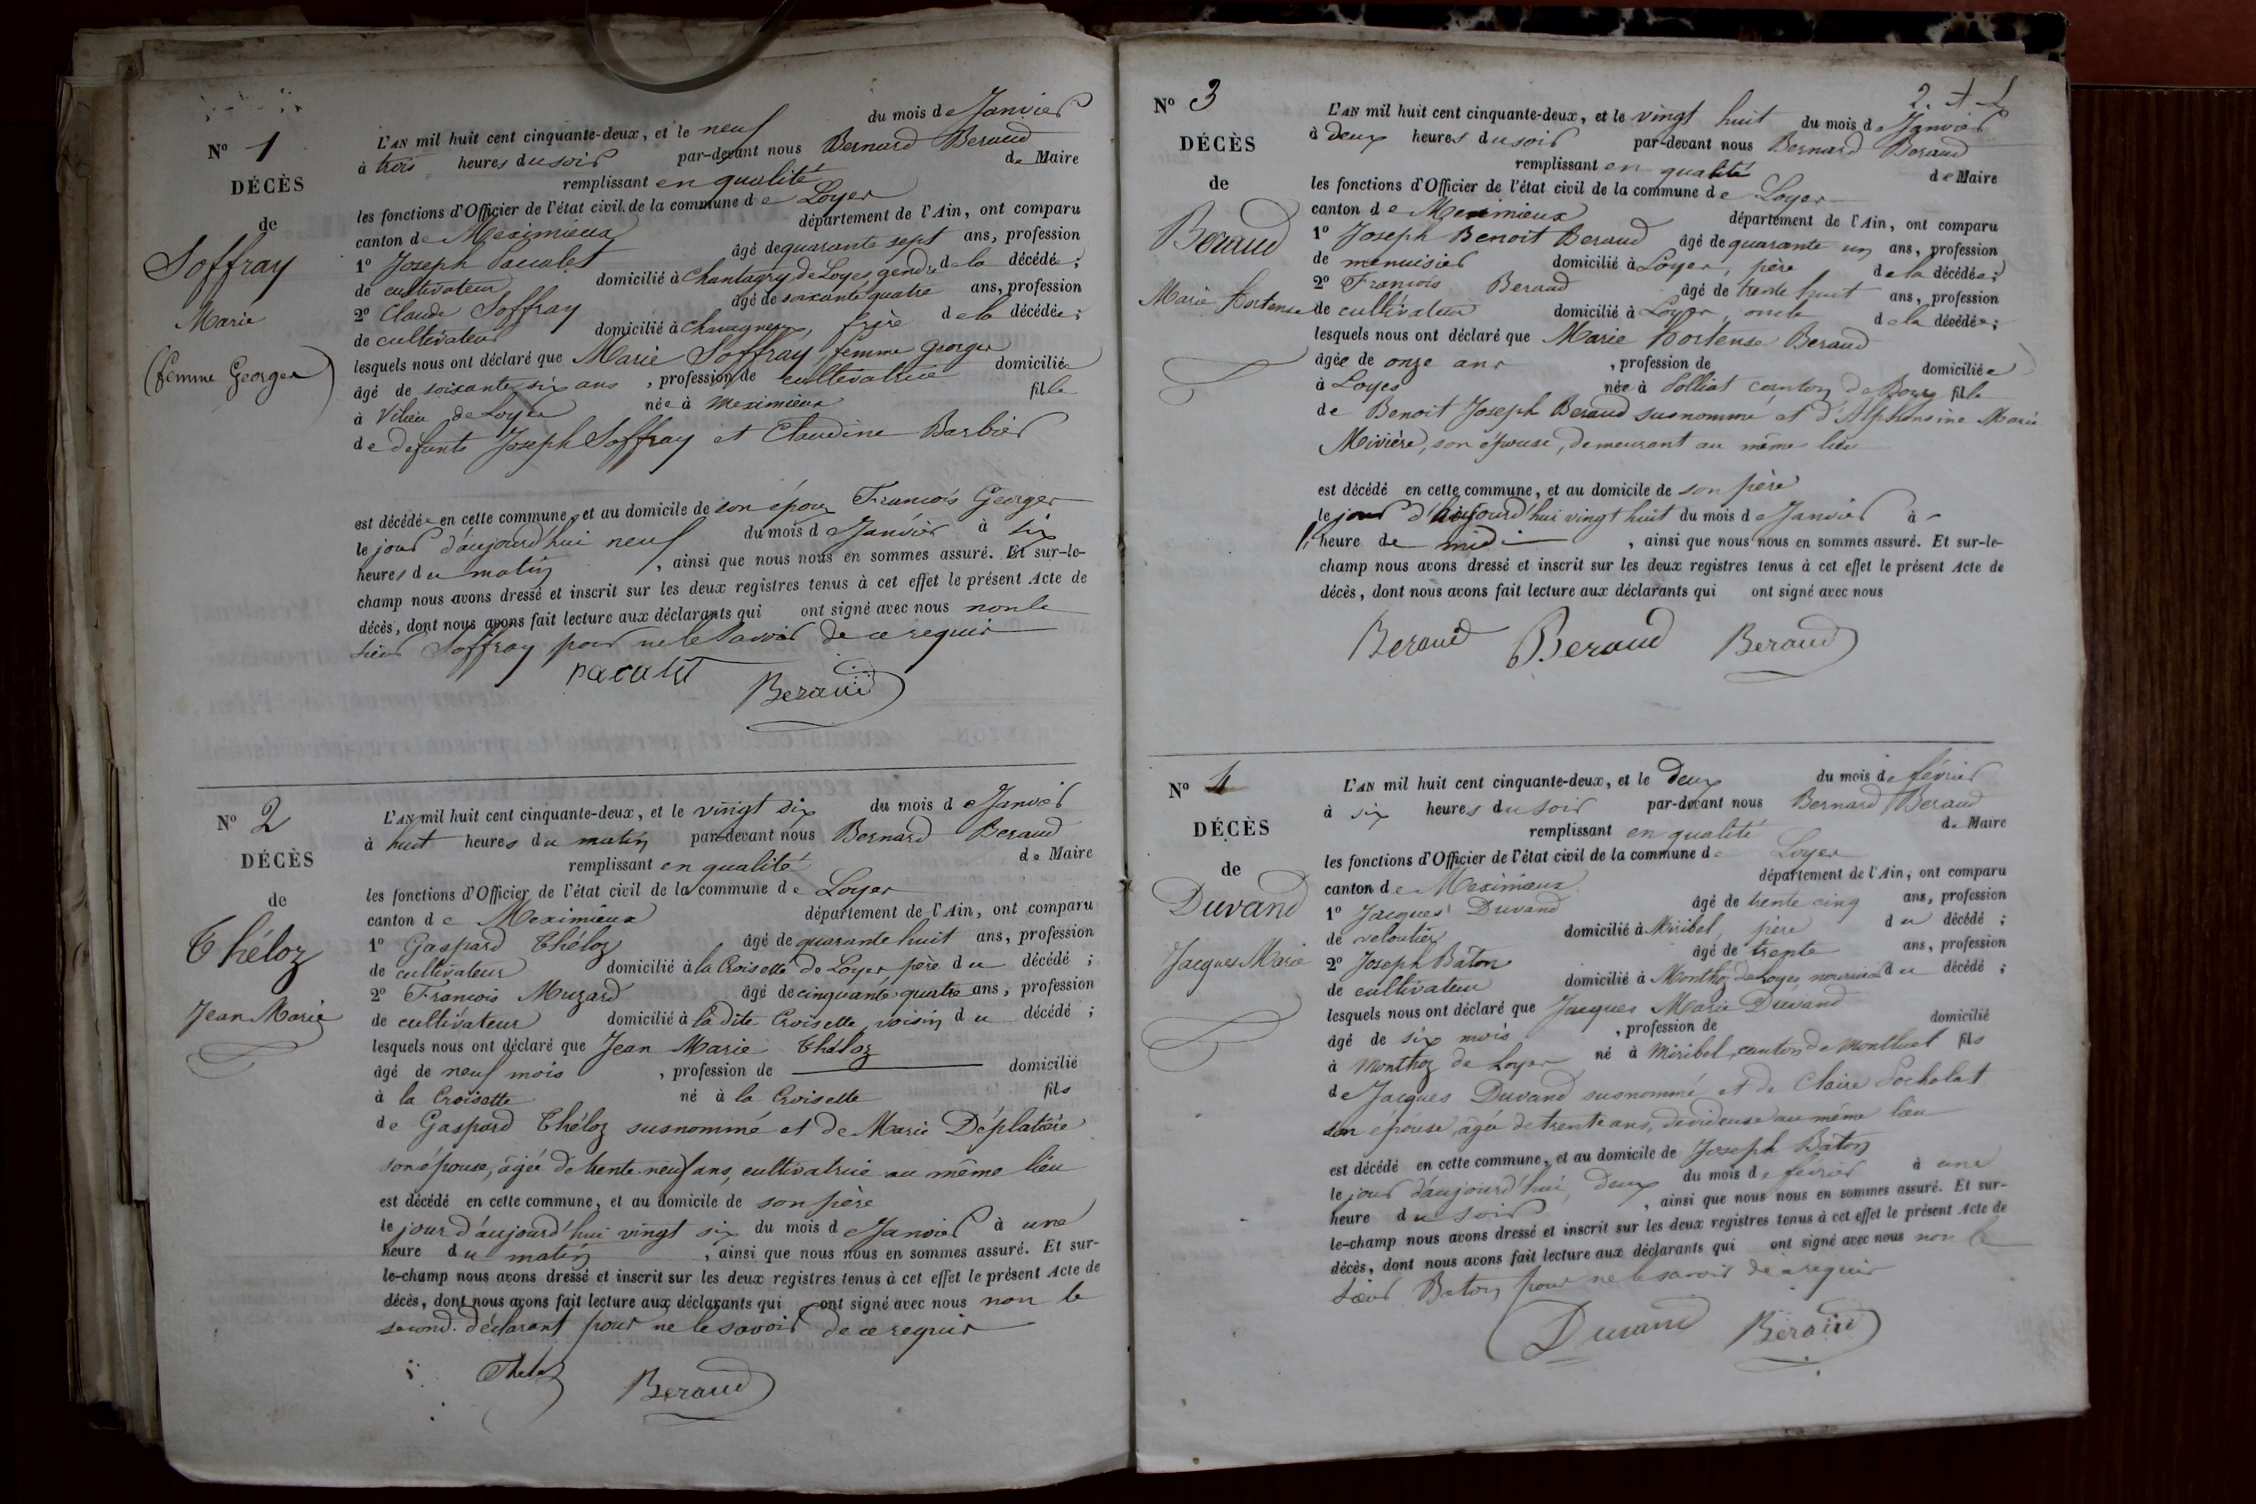 N° 1
DÉCÈS
de
Soffray
Marie
(femme Georges)
L'AN mil huit cent cinquante-deux, et le neuf du mois de Janvier
à trois heures du soir par-devant nous Bernard Beraud
remplissant en qualité de Maire
les fonctions d'Officier de l'état civil de la commune de Loyes
canton de Meximieux département de l'Ain, ont comparu
1° Joseph Pacalet âgé de quarante sept ans, profession
de cultivateur domicilié à Chantagry de Loyes gendre de la décédée ;
2° Claude Soffray âgé de soixante quatre ans, profession
de cultivateur domicilié à frère de la décédée ;
lesquels nous ont déclaré que Marie Soffray femme Georges
âgé de soixante six ans , profession de cultivatrice domiciliée
à Vilieu de Loyes née à Meximieux fille
de defunts Joseph Soffray et Claudine Barbier
est décédée en cette commune, et au domicile de son époux François Georges
le jour d'aujourd'hui neuf du mois de Janvier à six
heures du matin , ainsi que nous nous en sommes assuré. Et sur-le-
champ nous avons dressé et inscrit sur les deux registres tenus à cet effet le présent Acte de
décès, dont nous avons fait lecture aux déclarants qui ont signé avec nous non le
sieur Soffray pour ne le savoir de ce requis
Pacalet Beraud
N° 2
DÉCÈS
de
Théloz
Jean Marie
L'AN mil huit cent cinquante-deux, et le vingt six du mois de Janvier
à huit heures du matin par-devant nous Bernard Beraud
remplissant en qualité de Maire
les fonctions d'Officier de l'état civil de la commune de Loyes
canton de Meximieux département de l'Ain, ont comparu
1° Gaspard Théloz âgé de quarante huit ans, profession
de cultivateur domicilié à la Croisette de Loyes père du décédé ;
2° François Muzard âgé de cinquante quatre ans, profession
de cultivateur domicilié à la dite Croisette, voisin du décédé ;
lesquels nous ont déclaré que Jean Marie Théloz
âgé de neuf mois , profession de domicilié
à la Croisette né à la Croisette fils
de Gaspard Théloz susnommé et de Marie Déplatière
son épouse, âgée de trente neuf ans, cultivatrice au même lieu
est décédé en cette commune, et au domicile de son père
le jour d'aujourd'hui vingt six du mois de Janvier à une
heure du matin , ainsi que nous nous en sommes assuré. Et sur-
le-champ nous avons dressé et inscrit sur les deux registres tenus à cet effet le présent Acte de
décès, dont nous avons fait lecture aux déclarants qui ont signé avec nous non le
second déclarant pour ne le savoir de ce requis
Theloz Beraud
2.
N° 3
DÉCÈS
de
Beraud
Marie Hortense
L'AN mil huit cent cinquante-deux, et le vingt huit du mois de Janvier
à deux heures du soir par-devant nous Bernard Beraud
remplissant en qualité de Maire
les fonctions d'Officier de l'état civil de la commune de Loyes
canton de Meximieux département de l'Ain, ont comparu
1° Joseph Benoit Beraud âgé de quarante un ans, profession
de menuisier domicilié à Loyes, père de la décédée ;
2° François Beraud âgé de trente huit ans, profession
de cultivateur domicilié à Loyes, oncle de la décédée ;
lesquels nous ont déclaré que Marie Hortense Beraud
âgée de onze ans , profession de domiciliée
à Loyes née à Polliat canton de Bourg fille
de Benoit Joseph Beraud susnommé et d'Alphonsine Marie
Mivière, son épouse, demeurant au même lieu
est décédé en cette commune, et au domicile de son père
le jour d'aujourd'hui vingt huit du mois de Janvier à
heure de midi , ainsi que nous nous en sommes assuré. Et sur-le-
champ nous avons dressé et inscrit sur les deux registres tenus à cet effet le présent Acte de
décès, dont nous avons fait lecture aux déclarants qui ont signé avec nous
Beraud Beraud Beraud
N° 4
DÉCÈS
de
Duvand
Jacques Marie
L'AN mil huit cent cinquante-deux, et le deux du mois de février
à six heures du soir par-devant nous Bernard Beraud
remplissant en qualité de Maire
les fonctions d'Officier de l'état civil de la commune de Loyes
canton de Meximieux département de l'Ain, ont comparu
1° Jacques Duvand âgé de trente cinq ans, profession
de veloutier domicilié à Miribel, père du décédé ;
2° Joseph Bâton âgé de trente ans, profession
de cultivateur domicilié à Monthoz de Loyes, nourricier du décédé ;
lesquels nous ont déclaré que Jacques Marie Duvand
âgé de six mois , profession de domicilié
à Monthoz de Loyes né à Miribel, canton de Montluel fils
de Jacques Duvand susnommé et de Claire Pocholat
son épouse, âgée de trente ans, dévideuse au même lieu
est décédé en cette commune, et au domicile de Joseph Bâton
le jour d'aujourd'hui, deux du mois de février à une
heure du soir , ainsi que nous nous en sommes assuré. Et sur-
le-champ nous avons dressé et inscrit sur les deux registres tenus à cet effet le présent Acte de
décès, dont nous avons fait lecture aux déclarants qui ont signé avec nous non le
sieur Baton pour ne le savoir de ce requis
Duvand Beraud